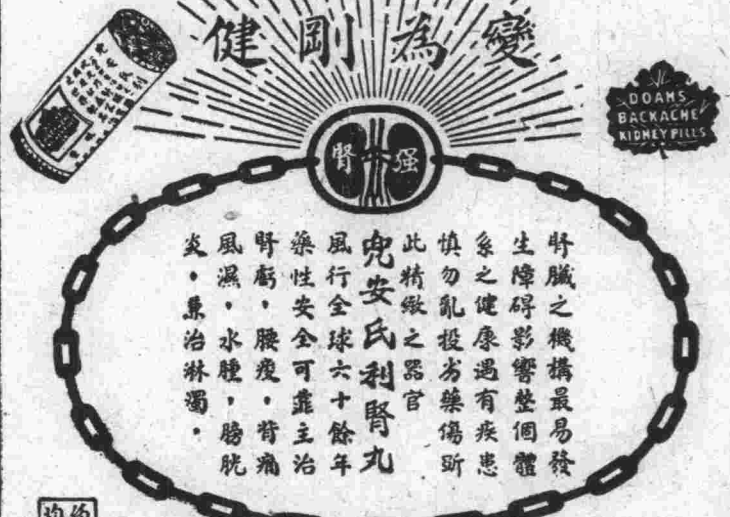 變為剛健
DOANS
BACKACHE
KIDNEY PILLS
强腎
腎臟之機構最易發
生障碍影響整個體
系之健康遇有疾患
慎勿亂投劣藥傷斲
此精緻之器官
兜安氏利腎丸
風行全球六十餘年
藥性安全可靠主治
腎虧，腰痠，背痛
風濕，水腫，膀胱
炎，兼治淋濁。